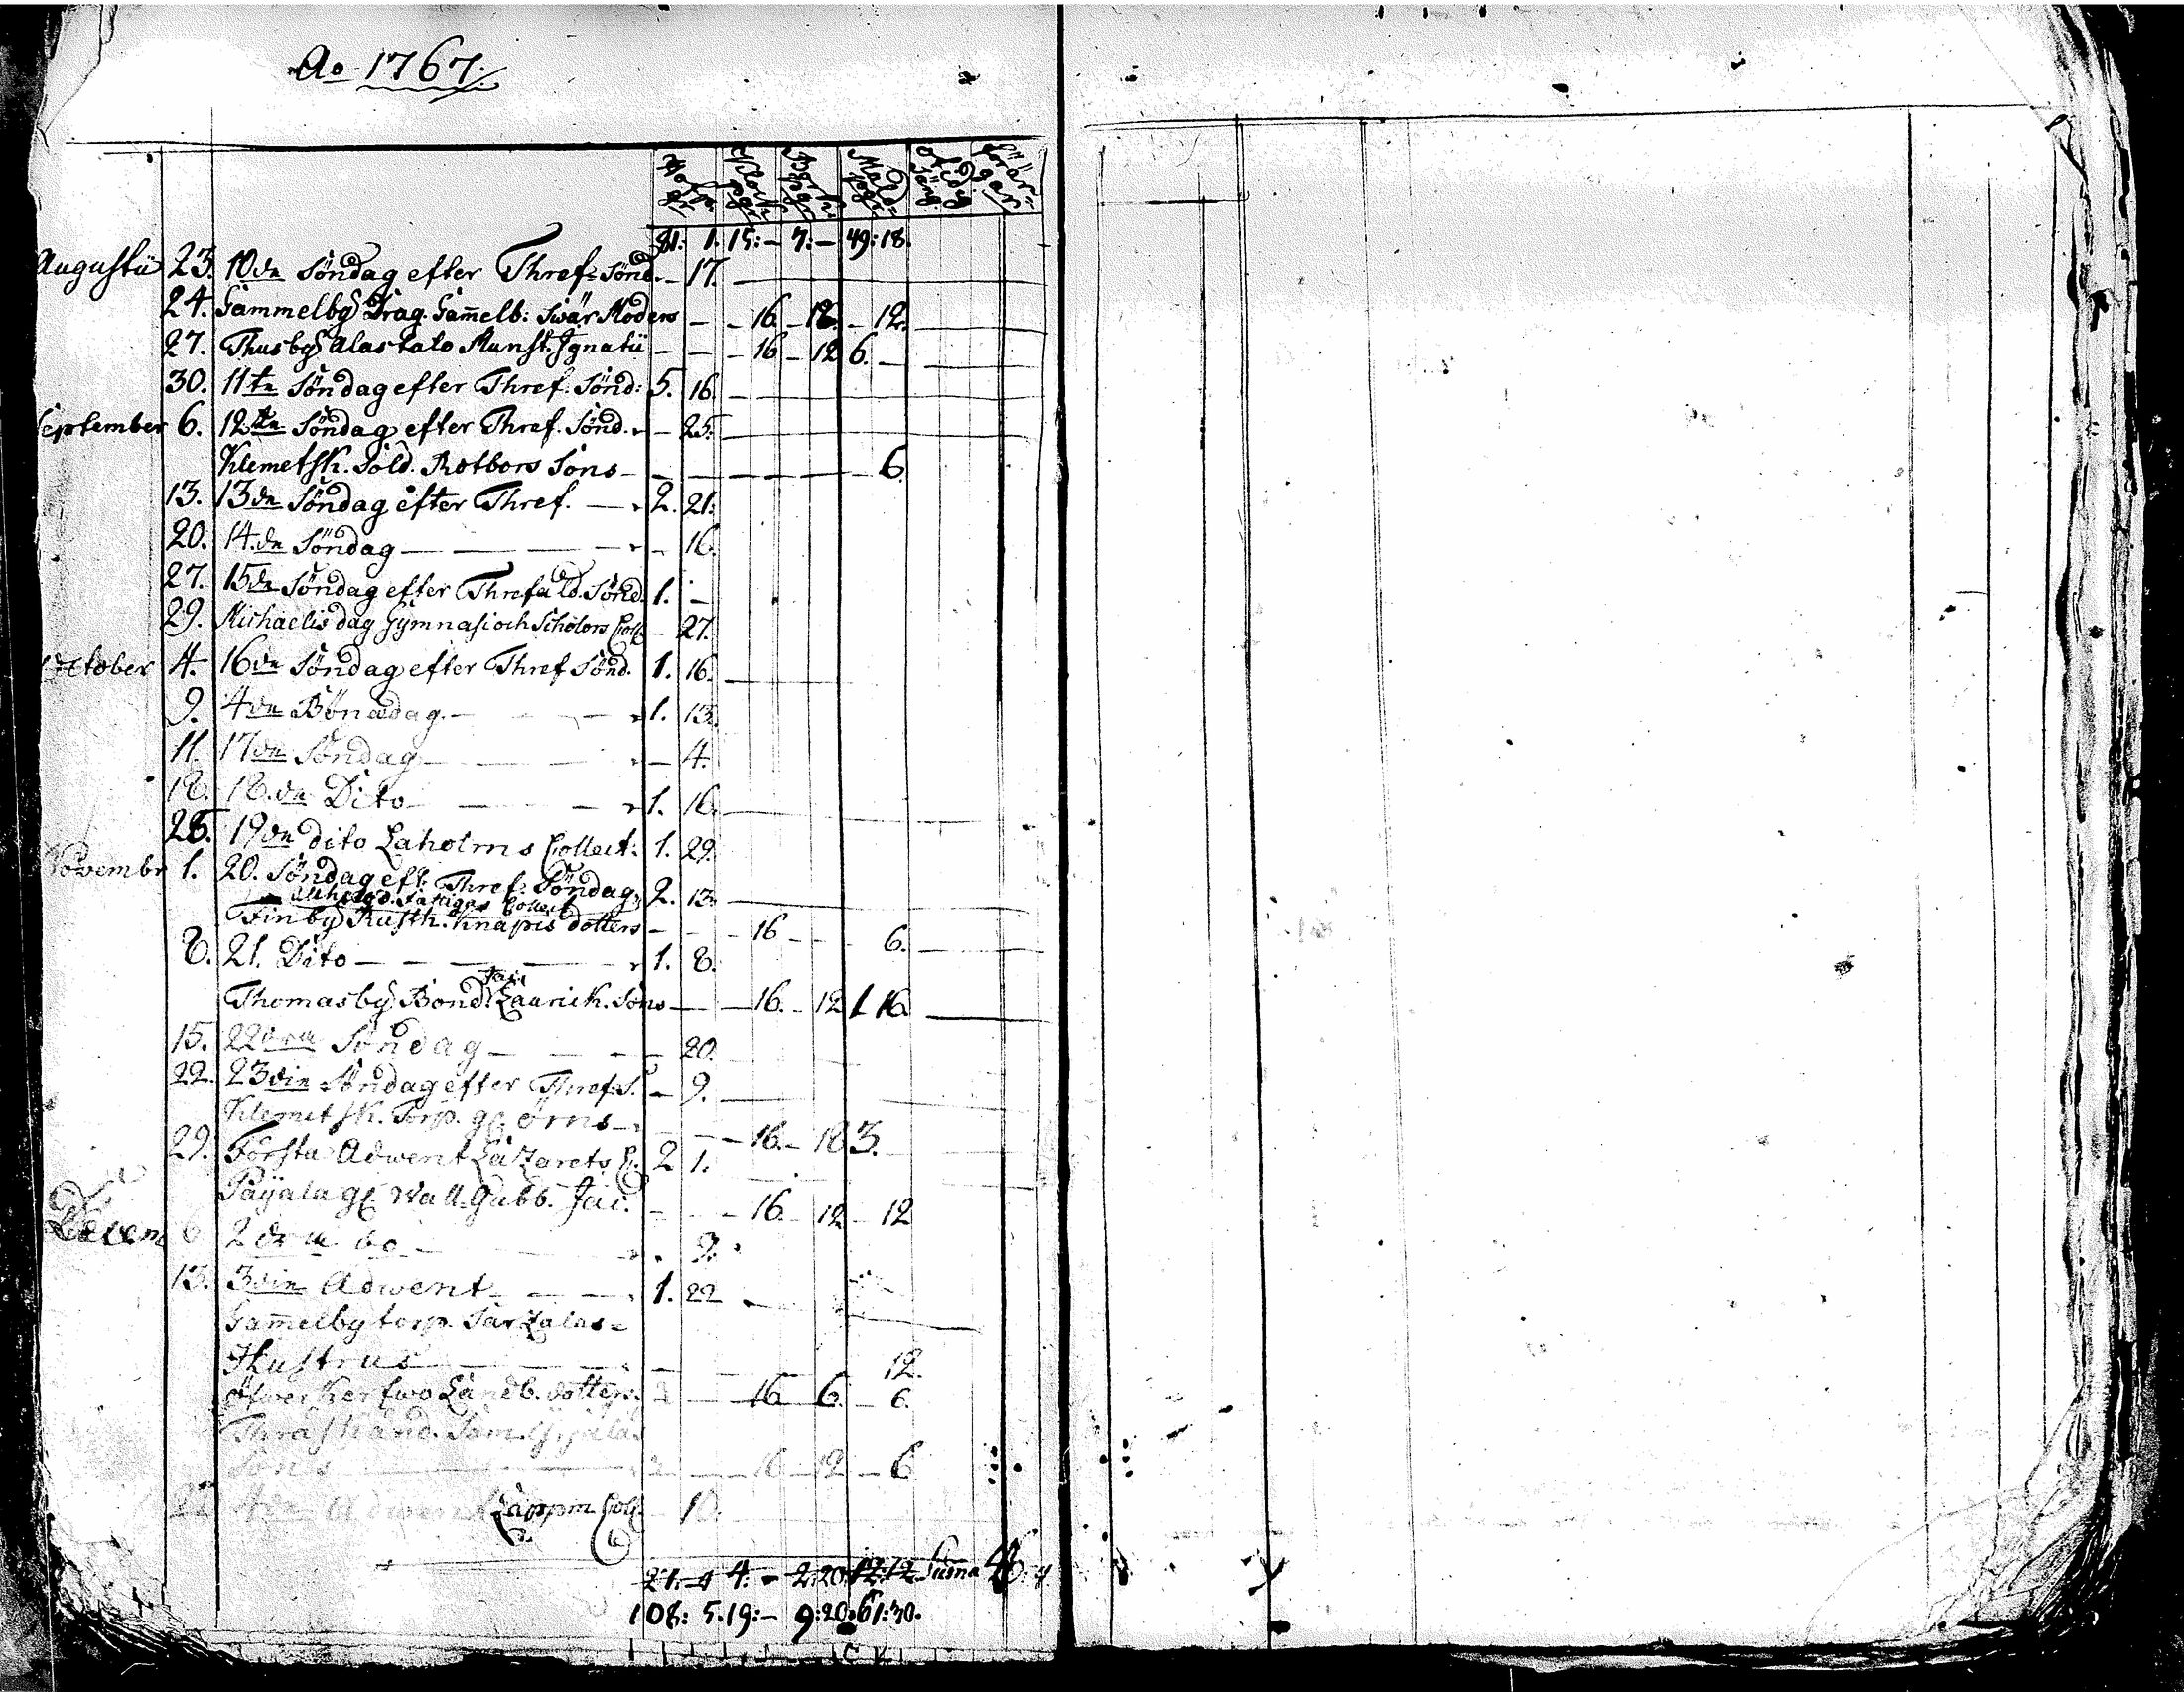 Ao 1767.
81: 1. 15:- 7:- 49:18.
Augustii 23. 10de Söndag efter Thref: Sönd. - 17.
24. Gammelby Drag. Gam̄elb: Swär Moders - - 16. - 12. - 12.
27. Thusby Alastalo Munst. Ignatii - - - 16 - 12 6. -
30. 11te Söndag efter Thref: Sönd: 5. 16.
September 6. 12te Söndag efter Thref. Sönd. - 25.
Klemetsk. Sold. Rotbors Sons - 6.
13. 13de Söndag efter Thref. - 2. 21.
20. 14.de Söndag - 16.
27. 15de Söndag efter Threfald. Sönd. 1. -
29. Michaelis dag Gymnasi och Scholors Coll. - 27.
October 4. 16de Söndag efter Thref Sönd. 1. 16.
9. 4de Bönedag. - 1. 13.
11. 17de Söndag - 4.
18. 18.de Dito - 1. 16.
25. 19de dito Laholms Collect: 1. 29.
Novembr 1. 20. Söndag eft. Thref: Söndag, 2. 13.
Fattigas Collect
Finby Rusth. Knapis dotters - - - 16 - - 6.
8. 21. Dito - 1. 8.
Jac:
Thomasby Bond. Laurick. Sons - - 16. - 12 1 16.
15. 22dra Söndag - 20.
22. 23die Söndag efter Thref. S. - 9.
Klemetsk. Torp. gl. Örns - - 16. - 18 3.
29. Första Adwent Lazarets C. 2 1.
Payala gl. Wall. Gubb. Jac. - - - 16. - 12 - 12
Decem 6 2dra do - 9.
13. 3die Adwent - 1. 22
Gam̄elby torp. Sarkalas
Hustrus - 12.
Landb. dotters. - - 16. 6. - 6.
Sons - - - 16 - 12 - 6
4de Adwent Lappm Coll. - 10.
27: 4 4: - 2:20. 12:12. Sum̄a 46: 4
108: 5. 19:- 9:20. 61:30.